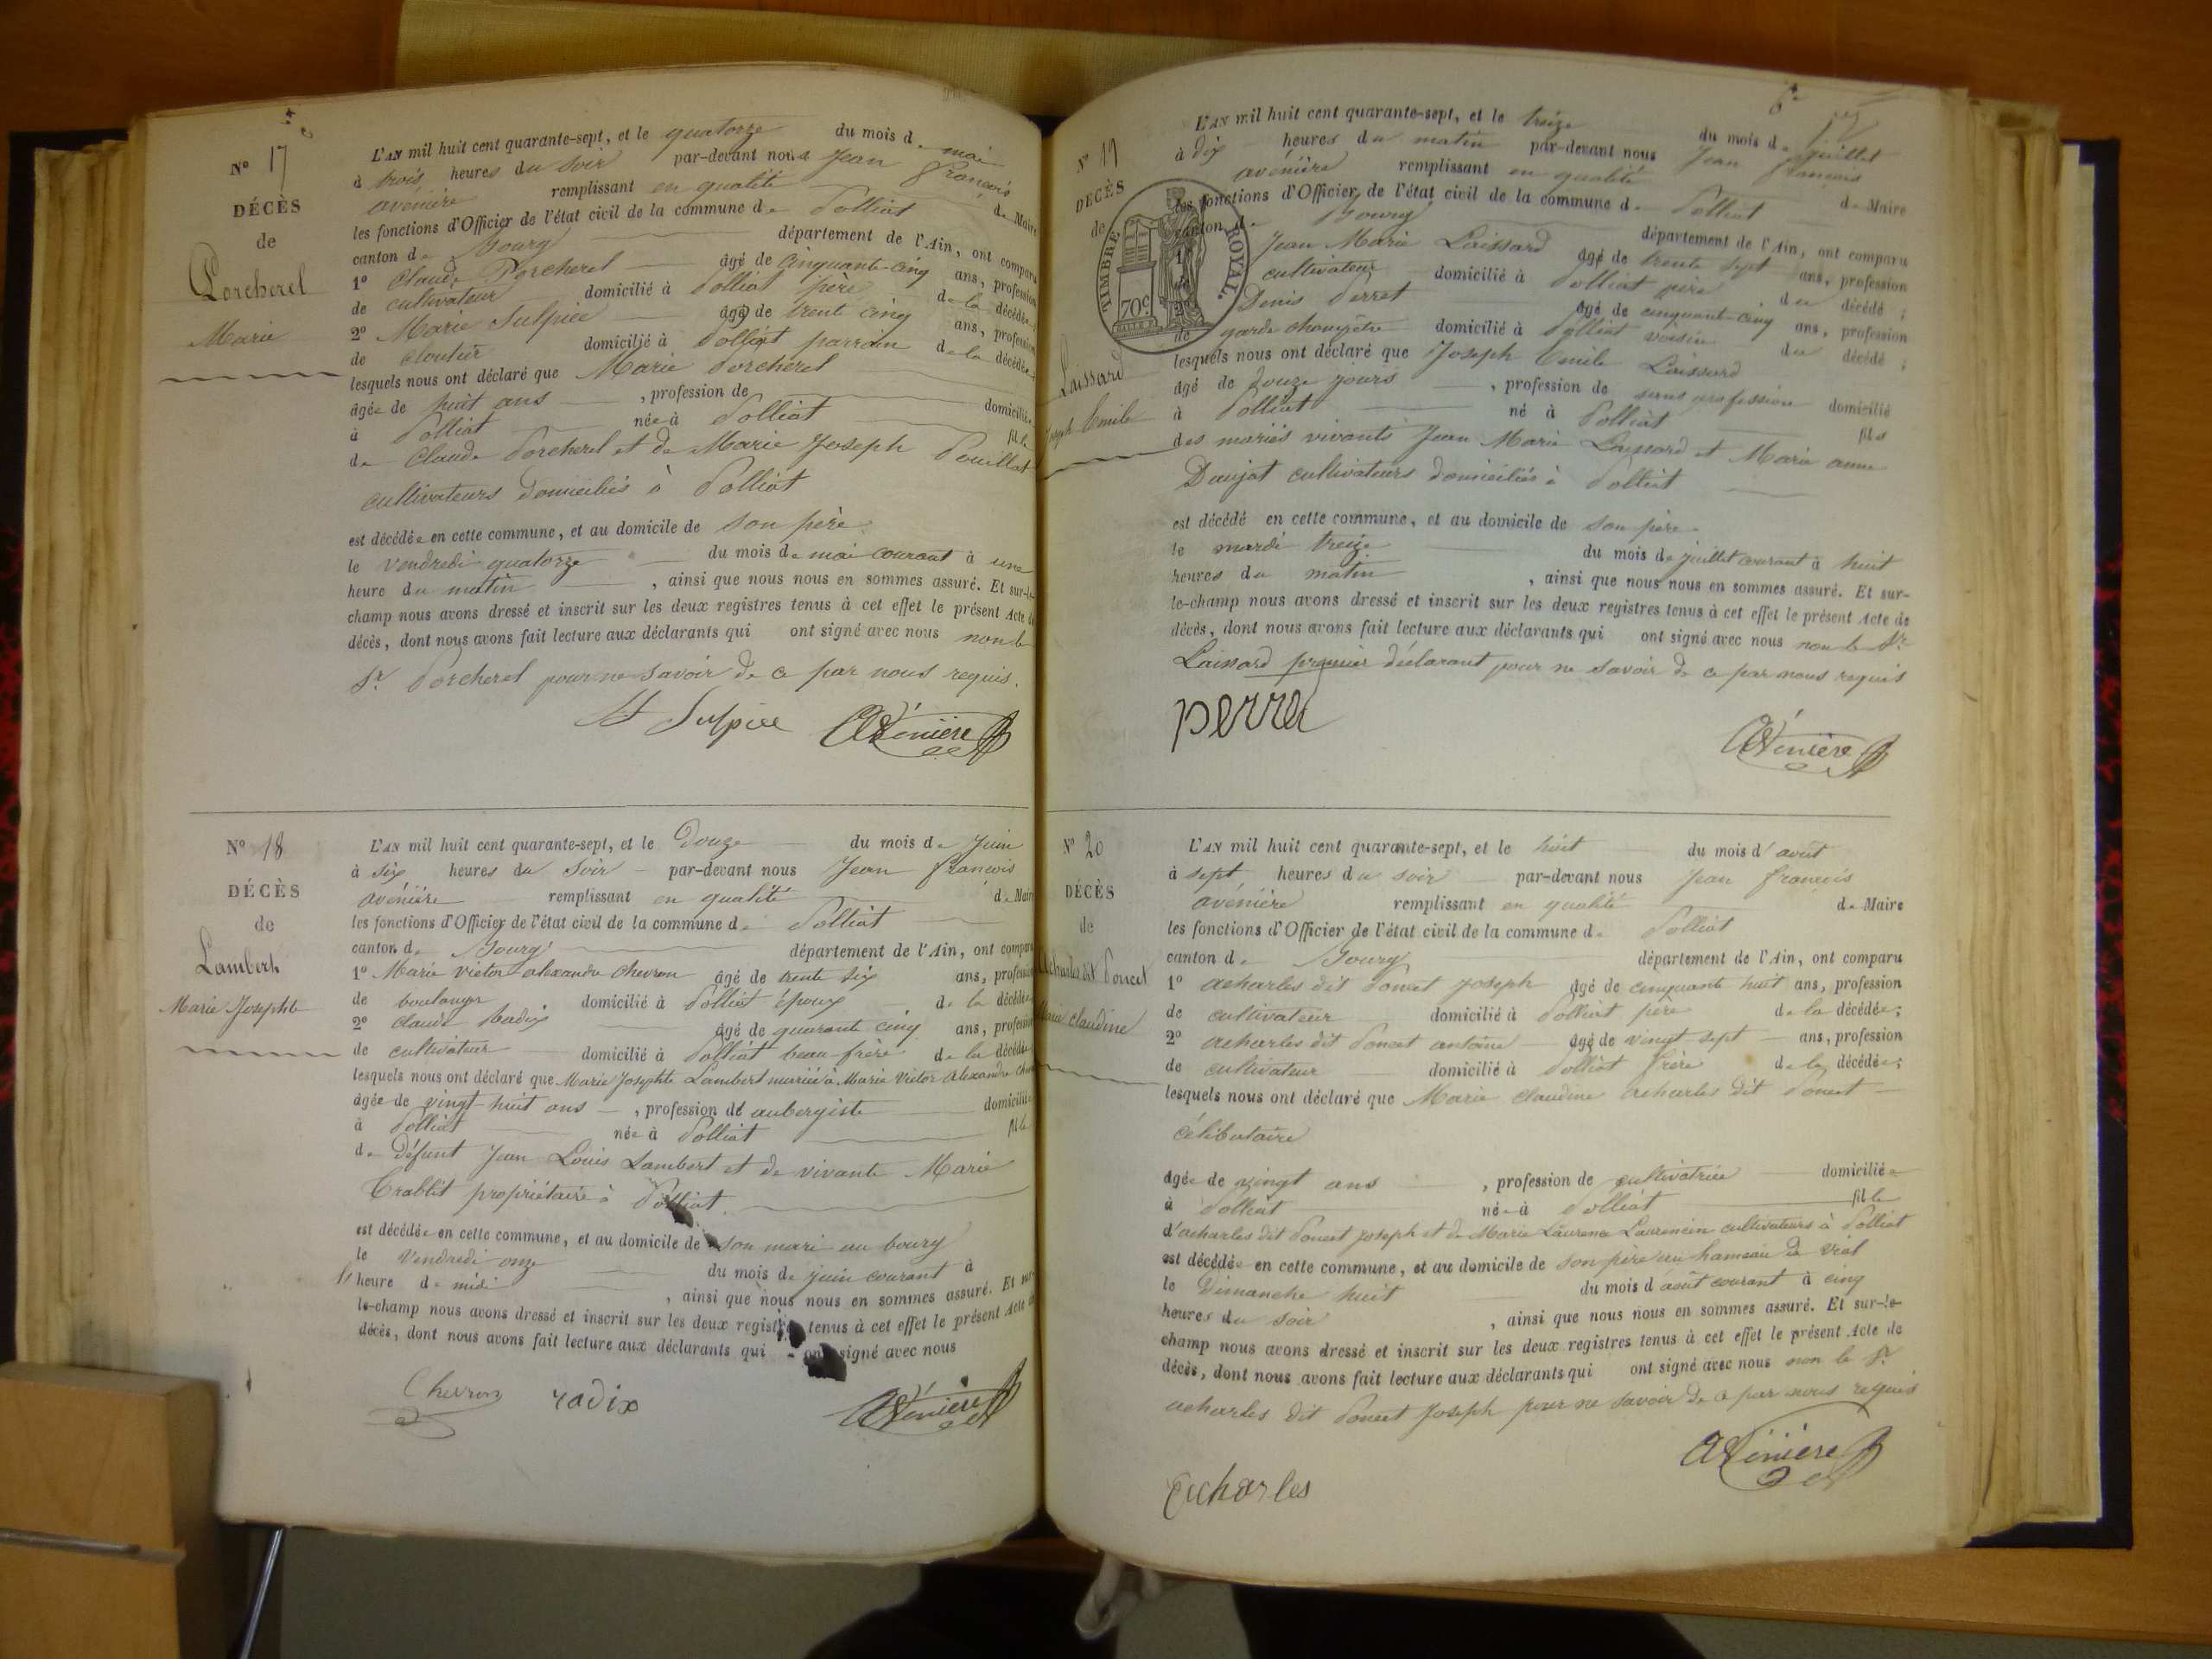 N° 17
DÉCÈS
de
Porcherel
Marie
L'AN mil huit cent quarante-sept, et le quatorze du mois de mai
à trois heures du soir par-devant nous Jean françois
avénière remplissant en qualité de Maire
les fonctions d'Officier de l'état civil de la commune de Polliat
canton de Bourg département de l'Ain, ont comparu
1° Claude Porcherel âgé de cinquante-cinq ans, profession
de cultivateur domicilié à Polliat père de la décédée
2° Marie Sulpice âgé de trent cinq ans, profession
de cloutier domicilié à Polliat parrain de la décédée
lesquels nous ont déclaré que Marie Porcherel
âgée de huit ans , profession de domiciliée
à Polliat née à Polliat fille
de Claude Porcherel et de Marie Joseph Pouillat
cultivateurs domiciliés à Polliat
est décédée en cette commune, et au domicile de son père
le vendredi quatorze du mois de mai courant à une
heure du matin , ainsi que nous nous en sommes assuré. Et sur-le-
champ nous avons dressé et inscrit sur les deux registres tenus à cet effet le présent Acte de
décès, dont nous avons fait lecture aux déclarants qui ont signé avec nous non le
Sr Porcherel pour ne savoir de ce par nous requis.
Sulpice Avénière
N° 18
DÉCÈS
de
Lambert
Marie Josephte
L'AN mil huit cent quarante-sept, et le Douze du mois de Juin
à six heures du soir par-devant nous Jean françois
avénière remplissant en qualité de Maire
les fonctions d'Officier de l'état civil de la commune de Polliat
canton de Bourg département de l'Ain, ont comparu
1° Marie victor alexandre chevron âgé de trente six ans, profession
de boulanger domicilié à Polliat époux de la décédée
2° claude Radix âgé de quarante cinq ans, profession
de cultivateur domicilié à Polliat beau-frère de la décédée
lesquels nous ont déclaré que Marie Josephte Lambert mariée à Marie Victor Alexandre
âgée de vingt-huit ans , profession de aubergiste domiciliée
à Polliat née à Polliat fille
de Défunt Jean Louis Lambert et de vivante Marie
Crablit propriétaire à Polliat
est décédée en cette commune, et au domicile de son mari au bourg
le vendredi onze du mois de juin courant à
heure de midi , ainsi que nous nous en sommes assuré. Et sur-
le-champ nous avons dressé et inscrit sur les deux registres tenus à cet effet le présent Acte de
décès, dont nous avons fait lecture aux déclarants qui ont signé avec nous
Chevron radix Avénière
N° 19
DÉCÈS
de
Laissard
Joseph Emile
TIMBRE ROYAL.
70c.
L'AN mil huit cent quarante-sept, et le treize du mois de juillet
à dix heures du matin par-devant nous Jean françois
avénière remplissant en qualité de Maire
les fonctions d'Officier de l'état civil de la commune de Polliat
canton de Bourg département de l'Ain, ont comparu
Jean Marie Laissard âgé de trente sept ans, profession
cultivateur domicilié à Polliat père du décédé ;
Denis Perret âgé de cinquant-cinq ans, profession
de garde champêtre domicilié à Polliat voisin du décédé ;
lesquels nous ont déclaré que Joseph Emile Laissard
âgé de Douze jours , profession de sans profession domicilié
à Polliat né à Polliat fils
des mariés vivants Jean Marie Laissard et Marie anne
Daujat cultivateurs domiciliés à Polliat
est décédé en cette commune, et au domicile de son père
le mardi treize du mois de juillet courant à huit
heures du matin , ainsi que nous nous en sommes assuré. Et sur-
le-champ nous avons dressé et inscrit sur les deux registres tenus à cet effet le présent Acte de
décès, dont nous avons fait lecture aux déclarants qui ont signé avec nous non le Sr
Laissard premier déclarant pour ne savoir de ce par nous requis
perret
Avénière
N° 20
DÉCÈS
de
acharles dit Poncet
Marie claudine
L'AN mil huit cent quarante-sept, et le huit du mois d'août
à sept heures du soir par-devant nous Jean françois
avénière remplissant en qualité de Maire
les fonctions d'Officier de l'état civil de la commune de Polliat
canton de Bourg département de l'Ain, ont comparu
1° acharles dit Poncet Joseph âgé de cinquante huit ans, profession
de cultivateur domicilié à Polliat père de la décédée;
2° acharles dit Poncet antoine âgé de vingt-sept ans, profession
de cultivateur domicilié à Polliat frère de la décédée;
lesquels nous ont déclaré que Marie claudine acharles dit Poncet
célibataire
âgée de vingt ans , profession de cultivatrice domiciliée
à Polliat née à Polliat fille
d'acharles dit Poncet joseph et de Marie Laurence Laurencin cultivateurs à Polliat
est décédée en cette commune, et au domicile de son père au hameau de vial
le Dimanche huit du mois d'août courant à cinq
heures du soir , ainsi que nous nous en sommes assuré. Et sur-le-
champ nous avons dressé et inscrit sur les deux registres tenus à cet effet le présent Acte de
décès, dont nous avons fait lecture aux déclarants qui ont signé avec nous non le Sr
acharles dit Poncet Joseph pour ne savoir de ce par nous requis
Avénière
acharles